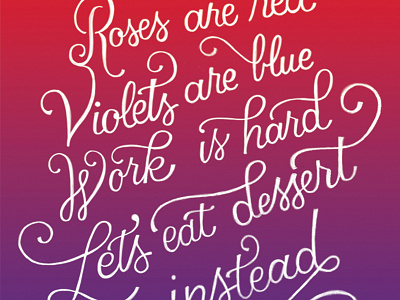 Roses are red
Violets are blue
Work is hard
Let's eat dessert
instead